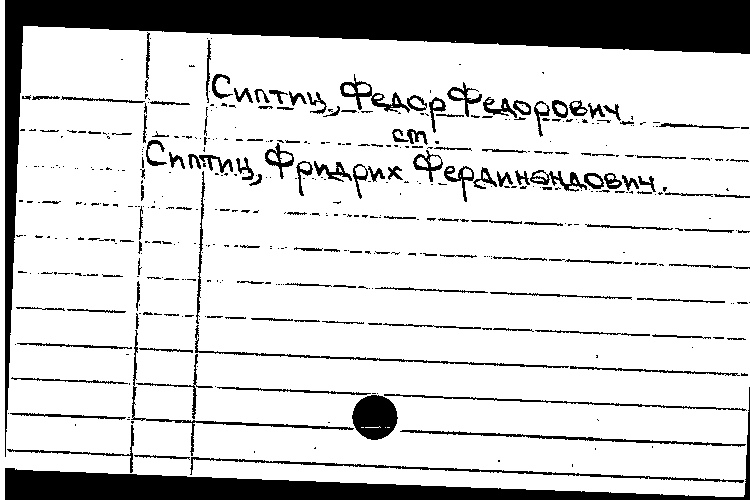 Сиптиц, Федор Федорович.
ст.
Сиптиц, Фридрих Фердинандович.